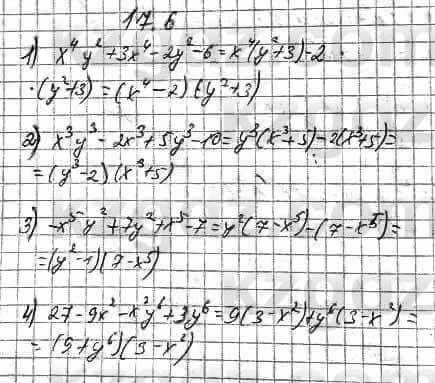 17.6
1) x⁴y² + 3x⁴ - 2y² - 6 = x⁴(y² + 3) - 2 ·
· (y² + 3) = (x⁴ - 2)(y² + 3)
2) x³y³ - 2x³ + 5y³ - 10 = y³(x³ + 5) - 2(x³ + 5) =
= (y³ - 2)(x³ + 5)
3) -x⁵y² + 7y² + x⁵ - 7 = y²(7 - x⁵) - (7 - x⁵) =
= (y² - 1)(7 - x⁵)
4) 27 - 9x² - x²y⁶ + 3y⁶ = 9(3 - x²) + y⁶(3 - x²) =
= (9 + y⁶)(3 - x²)